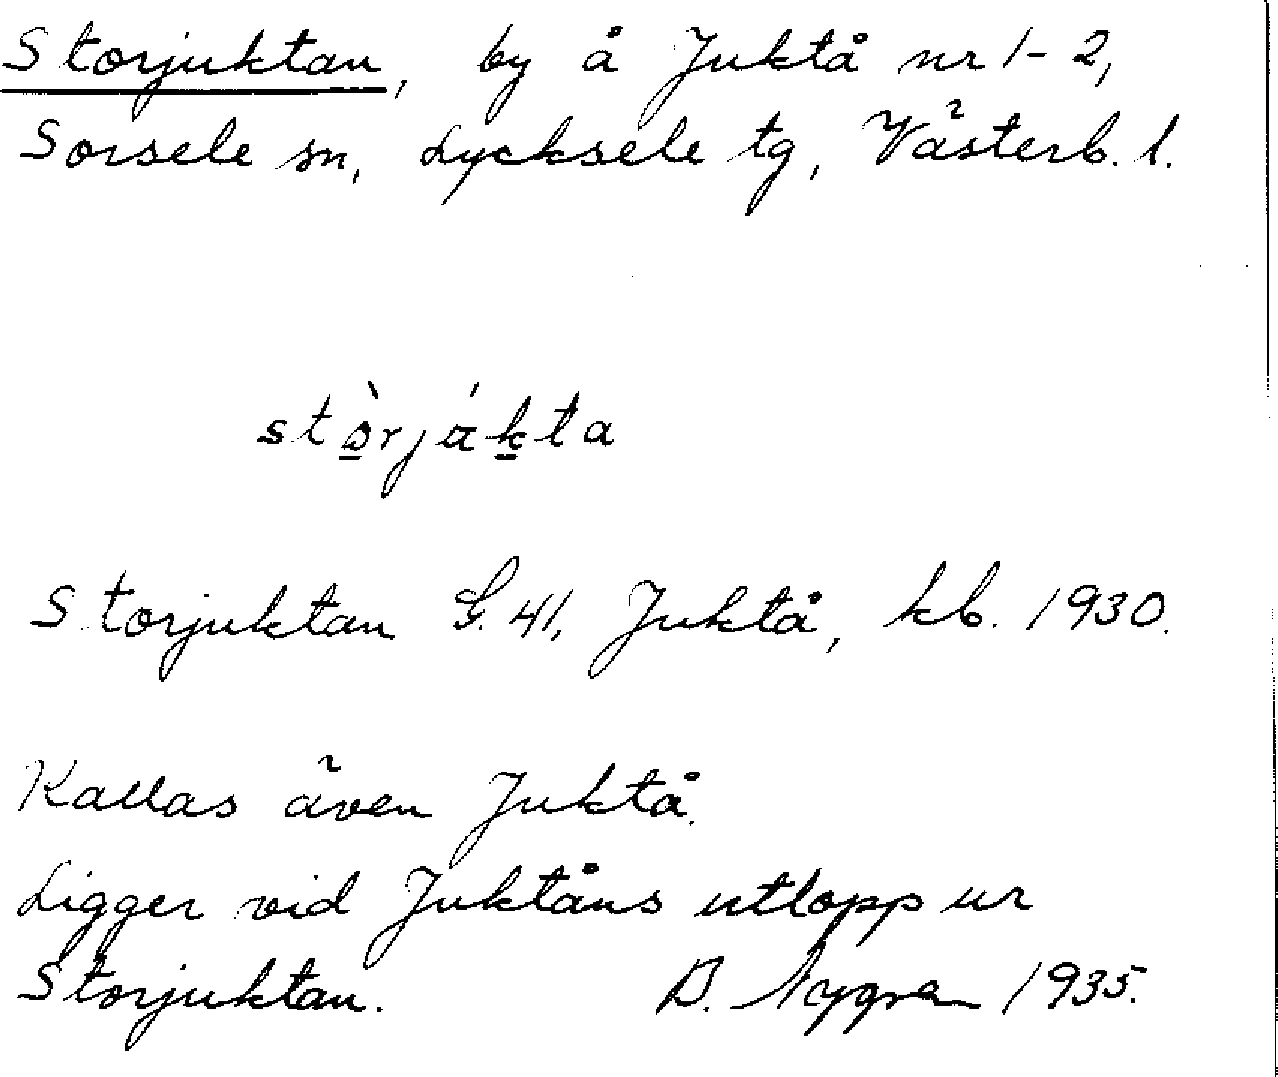 Storjuktan, by å Juktå nr 1-2,
Sorsele sn, Lycksele tg, Västerb. l.
stòrjákta
Storjuktan G. 41, Juktå, kb. 1930.
Kallas även Juktå.
Ligger vid Juktåns utlopp ur
Storjuktan. B. Nygren 1935.